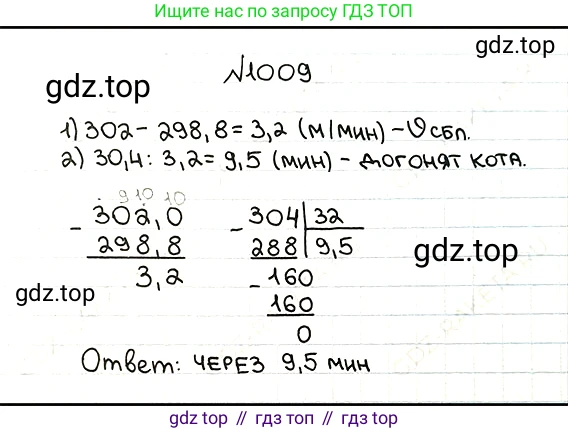 Ищите нас по запросу ГДЗ ТОП
№1009
gdz.top
gdz.top
1) 302 - 298,8 = 3,2 (м/мин) - υ сбл.
2) 30,4 : 3,2 = 9,5 (мин) - догонят кота.
9 10 10
- 302,0
298,8
3,2
- 304 | 32
288 | 9,5
- 160
160
0
gdz.top
gdz.top
Ответ: через 9,5 мин
gdz top // гдз топ // гдз.топ // gdz.top